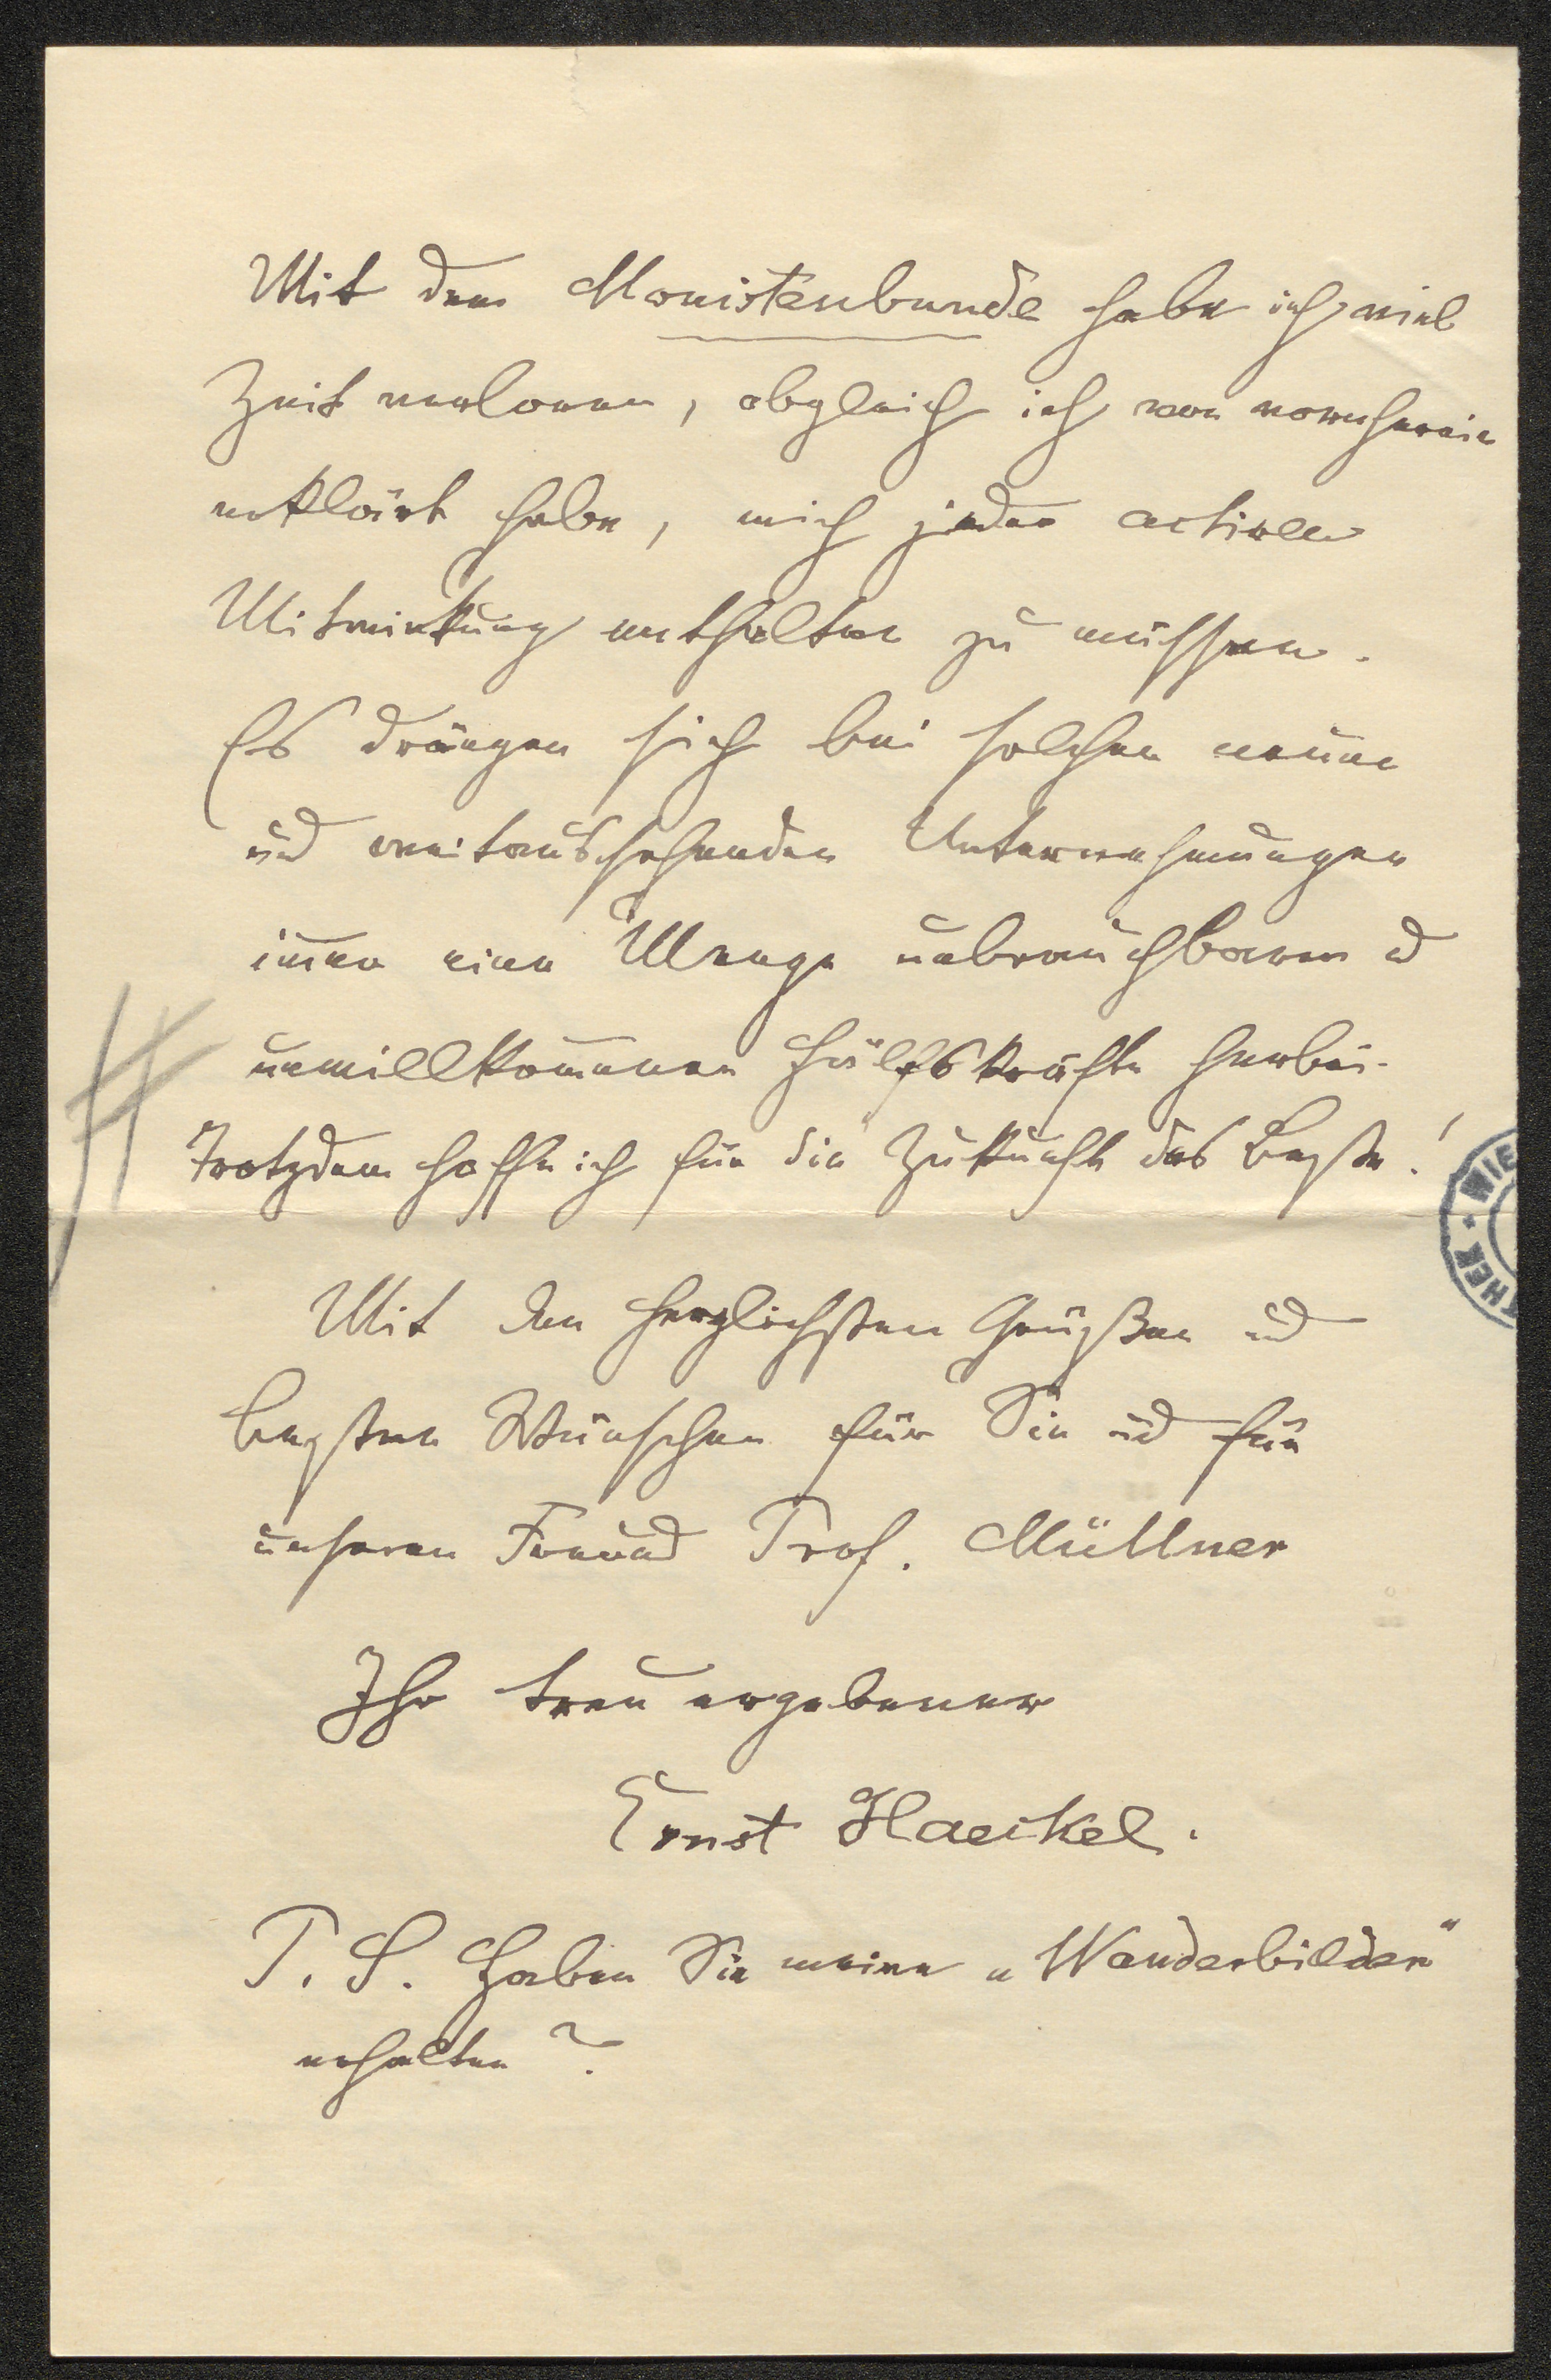 Mit dem Monistenbunde habe ich viel
Zeit verloren, obgleich ich von vornherein
erklärt habe, mich jeder activen
Mitwirkung enthalten zu müssen.
Es drängen sich bei solchen neuen
und weitaussehenden Unternehmungen
immer eine Menge unbrauchbarer u
unwillkommener Hülfskräfte herbei.
Trotzdem hoffe ich für die Zukunft das Beste!
Mit den herzlichsten Grüßen und
besten Wünschen für Sie und für
unseren Freund Prof. Müllner
Ihr treu ergebener
Ernst Haeckel.
P. S. Haben Sie meine „Wanderbilder“
erhalten?
WIE
THEK